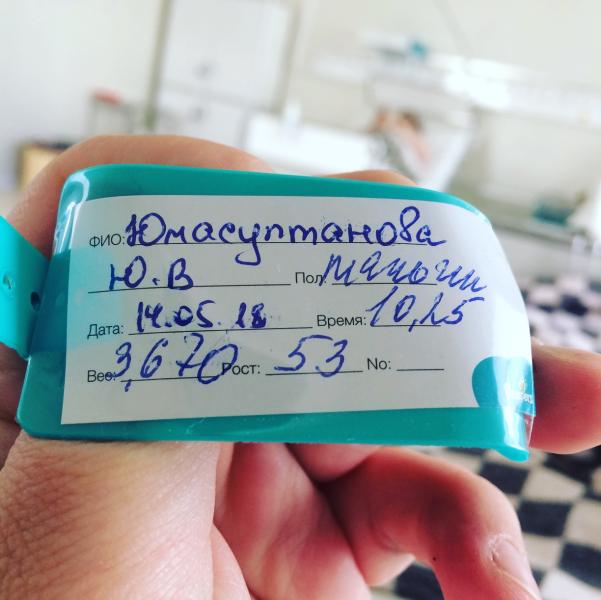 ФИО: Юмасултанова
Ю.В Пол: мальчик
Дата: 14.05.18 Время: 10,25
Вес: 3,670 Рост: 53 No: